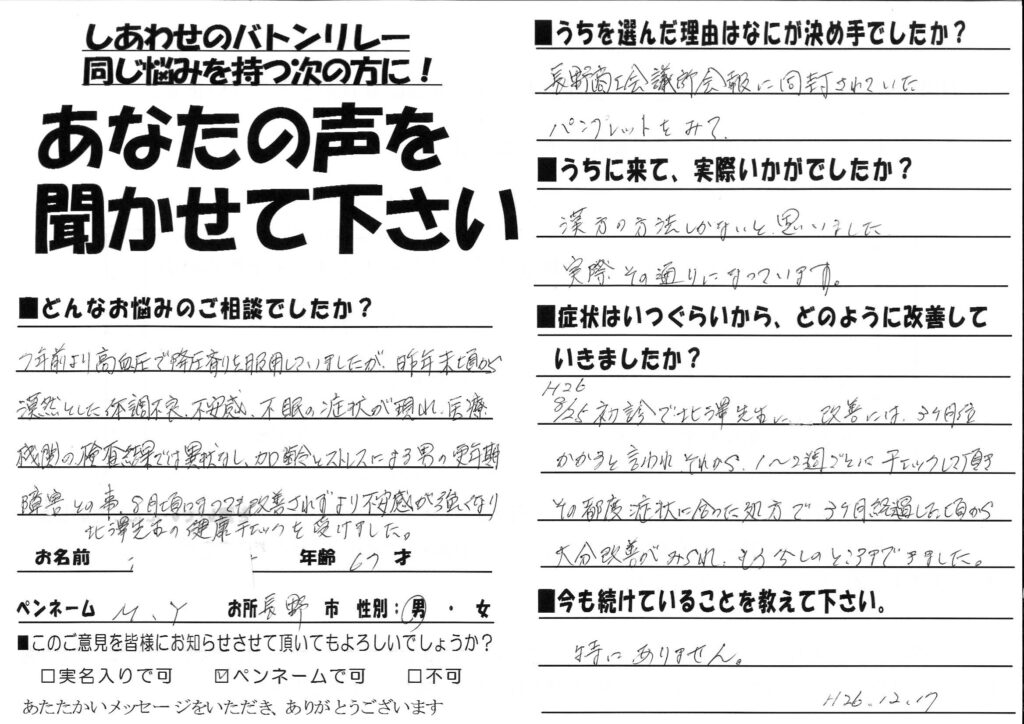 しあわせのバトンリレー
同じ悩みを持つ次の方に！
あなたの声を
聞かせて下さい
■どんなお悩みのご相談でしたか？
7年前より高血圧で降圧剤を服用していましたが、昨年末頃から
漠然とした体調不良、不安感、不眠の症状が現れ、医療
機関の検査結果では異状なし、加齢とストレスによる男の更年期
障害との事、8月頃になっても改善されずより不安感が強くなり
北澤先生の健康チェックを受けました。
お名前 年齢 67 才
ペンネーム M.Y お所 長野 市 性別：男 ・ 女
■このご意見を皆様にお知らせさせて頂いてもよろしいでしょうか？
□実名入りで可 ☑ペンネームで可 □不可
あたたかいメッセージをいただき、ありがとうございます
■うちを選んだ理由はなにが決め手でしたか？
長野商工会議所会報に同封されていた
パンフレットをみて、
■うちに来て、実際いかがでしたか？
漢方の方法しかないと思いました
実際その通りになっています。
■症状はいつぐらいから、どのように改善して
いきましたか？
H26
8/25 初診で北澤先生に 改善には、3ヶ月位
かかると言われそれから、1～2週ごとにチェックして頂き
その都度症状に合った処方で3ヶ月経過した頃から
大分改善がみられ、もう少しのところまできました。
■今も続けていることを教えて下さい。
特にありません。
H26.12.17